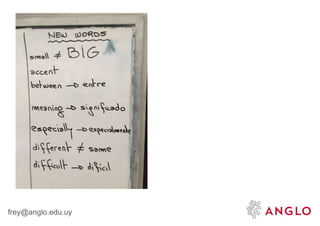 NEW WORDS
small ≠ BIG
accent
between → entre
meaning → significado
especially → especialmente
different ≠ same
difficult → dificil
frey@anglo.edu.uy
ANGLO